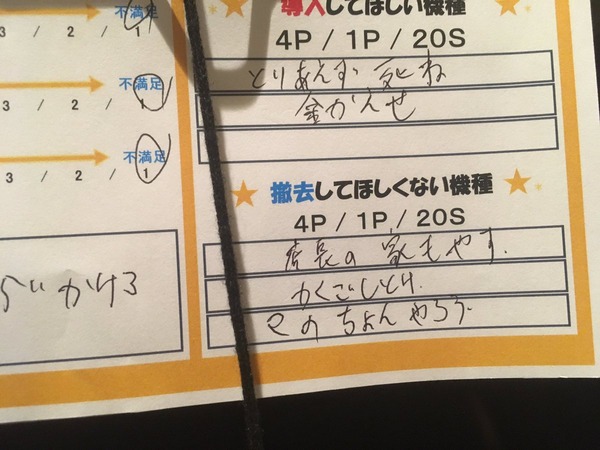 導入してほしい機種
4P / 1P / 20S
とりあえず 死ね
金かえせ
不満足
3 / 2 / 1
不満足
3 / 2 / 1
不満足
3 / 2 / 1
撤去してほしくない機種
4P / 1P / 20S
店長の 家もやす.
かくごしとけ.
このちょんやろう.
らいかける